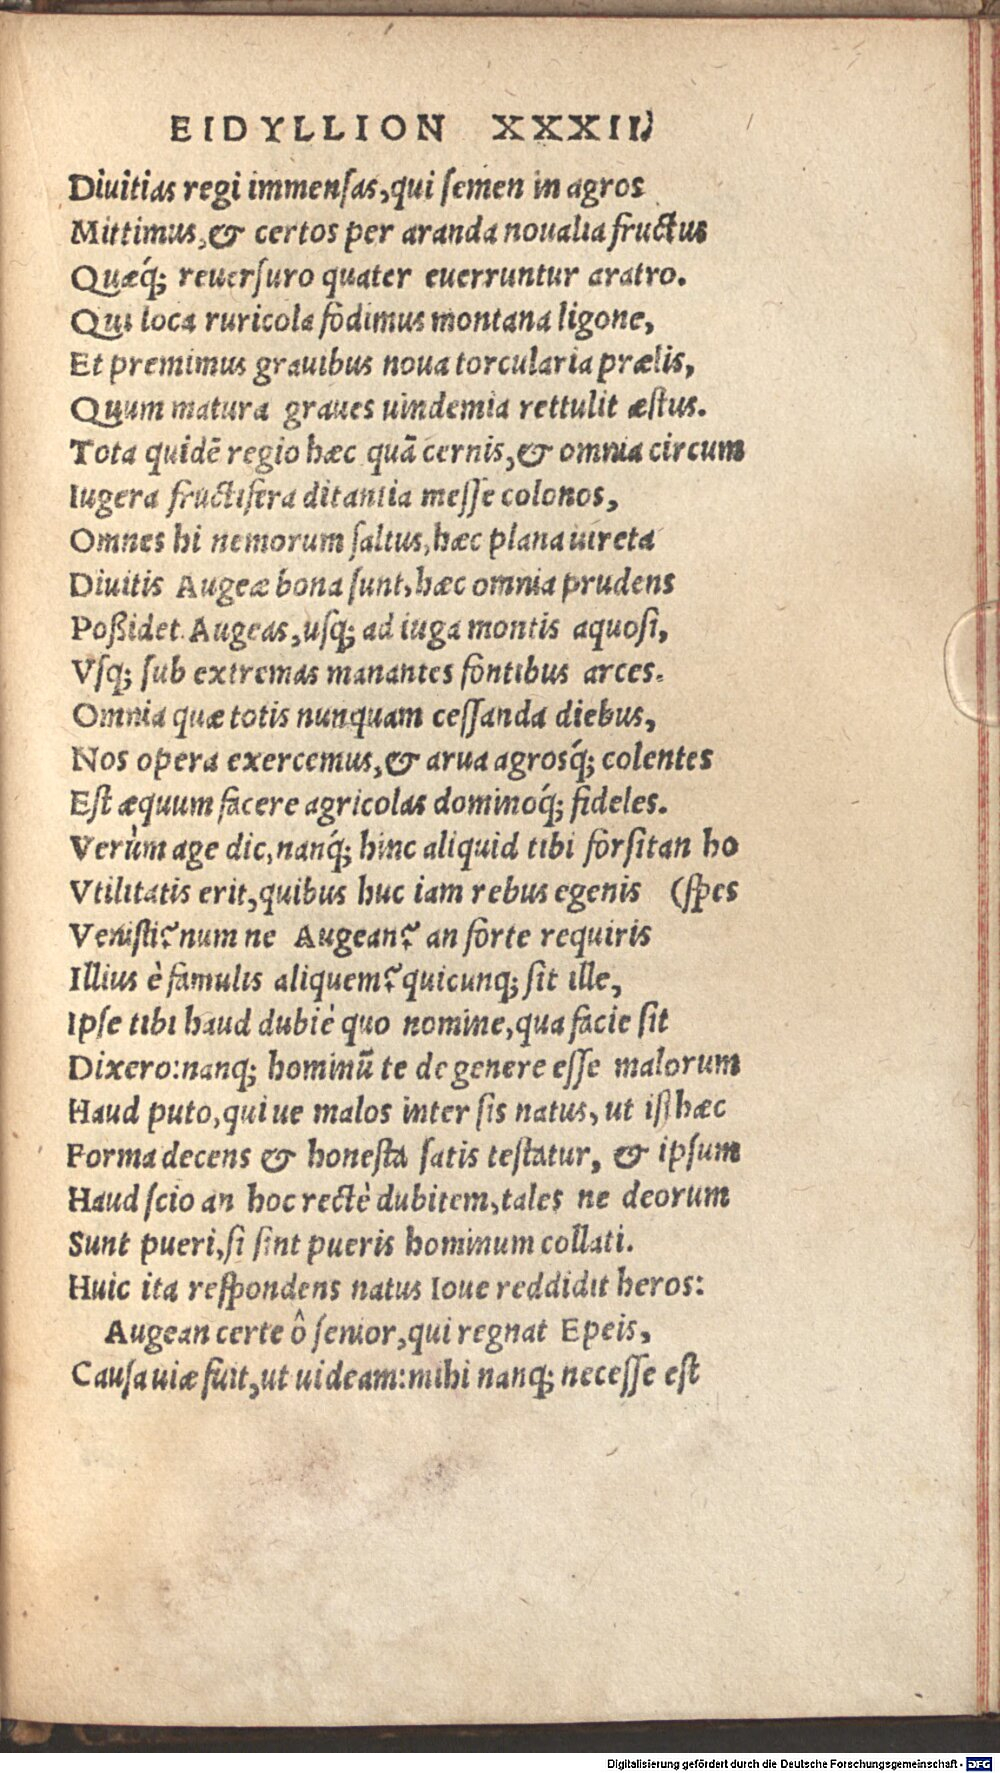 EIDYLLION XXXII
Diuitias regi immensas, qui semen in agros
Mittimus, & certos per aranda noualia fructus
Quæq́; reuersuro quater euerruntur aratro.
Qui loca ruricola fodimus montana ligone,
Et premimus grauibus noua torcularia prælis,
Quum matura graues uindemia rettulit æstus.
Tota quidẽ regio hæc quã cernis, & omnia circum
Iugera fructifera ditantia messe colonos,
Omnes hi nemorum saltus, hæc plana uireta
Diuitis Augeæ bona sunt, hæc omnia prudens
Poßidet Augeas, usq; ad iuga montis aquosi,
Vsq; sub extremas manantes fontibus arces.
Omnia quæ totis nunquam cessanda diebus,
Nos opera exercemus, & arua agrosq́; colentes
Est æquum facere agricolas dominoq́; fideles.
Verùm age dic, nanq́; hinc aliquid tibi forsitan ho
Vtilitatis erit, quibus huc iam rebus egenis (spes
Venisti? num ne Augean? an forte requiris
Illius è famulis aliquem? quicunq; sit ille,
Ipse tibi haud dubiè quo nomine, qua facie sit
Dixero: nanq; hominũ te de genere esse malorum
Haud puto, qui ue malos inter sis natus, ut isthæc
Forma decens & honesta satis testatur, & ipsum
Haud scio an hoc rectè dubitem, tales ne deorum
Sunt pueri, si sint pueris hominum collati.
Huic ita respondens natus Ioue reddidit heros:
Augean certe ô senior, qui regnat Epeis,
Causa uiæ fuit, ut uideam: mihi nanq; necesse est
Digitalisierung gefördert durch die Deutsche Forschungsgemeinschaft - DFG